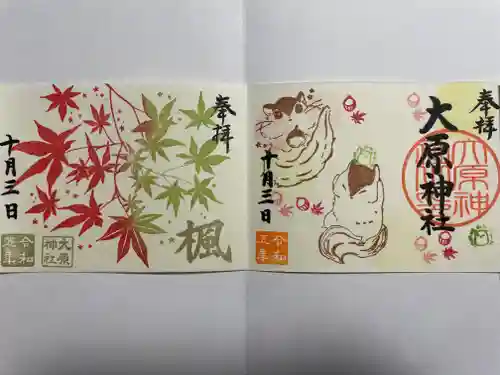 奉拝
大原神社
十月三日
令和
五年
奉拝
楓
十月三日
大原
神社
令和
五年